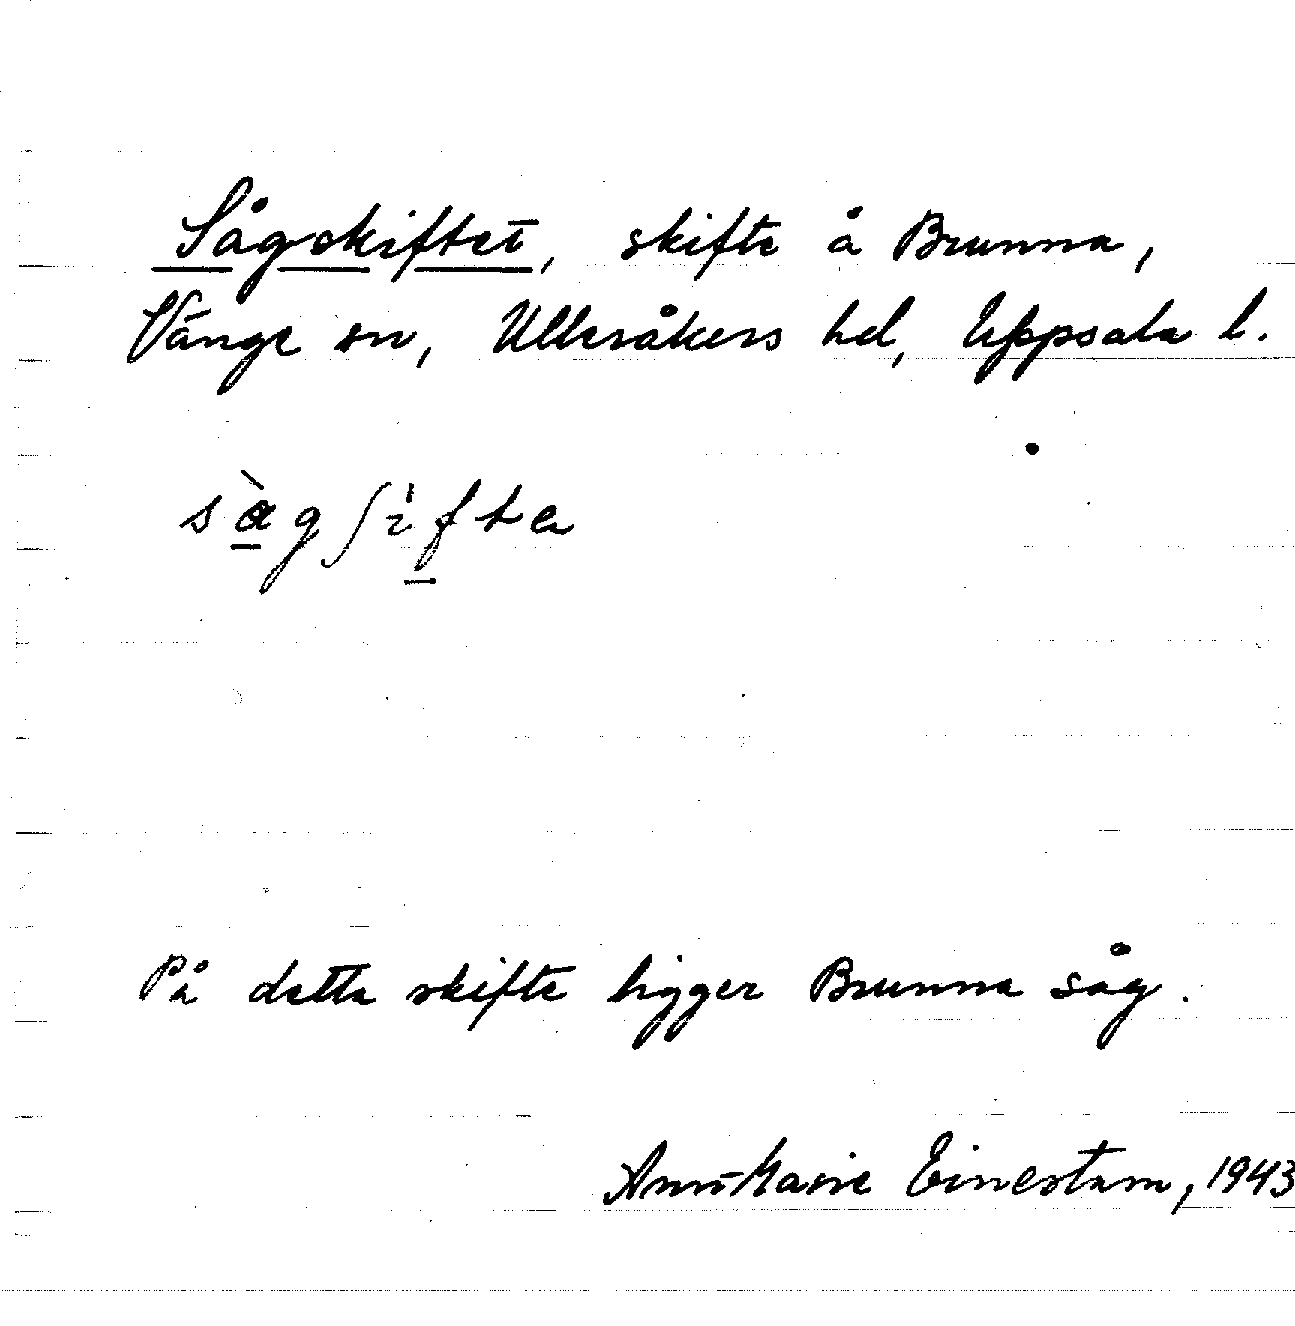 Sågskiftet, skifte å Brunna,
Vänge sn, Ulleråkers hd, Uppsala l.
sàgʃifta
På detta skifte ligger Brunna såg.
Ann-Marie Einestam, 1943